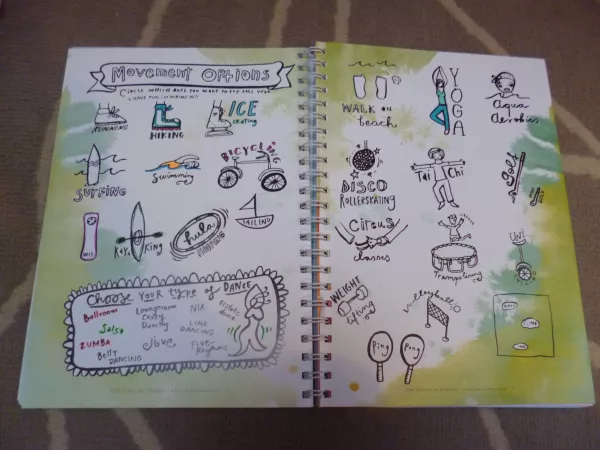 Movement Options
Circle which ones you want to try this year
RUNNING
HIKING
ICE
skating
SURFING
Swimming
BICYCLING
Wii
KAYAKING
hula
HOOPING
SAILING
Choose your type of DANCE
Ballroom
Salsa
ZUMBA
Belly
DANCING
Loungeroom
Crazy
Dancing
Jive
NIA
LINE
DANCING
FIVE
Rhythms
WALK on
beach
YOGA
Aqua
Aerobics
DISCO
ROLLERSKATING
Tai Chi
Golf
Circus
Classes
Trampolining
UNI
WEIGHT
lifting
Volleyball
Ping Pong